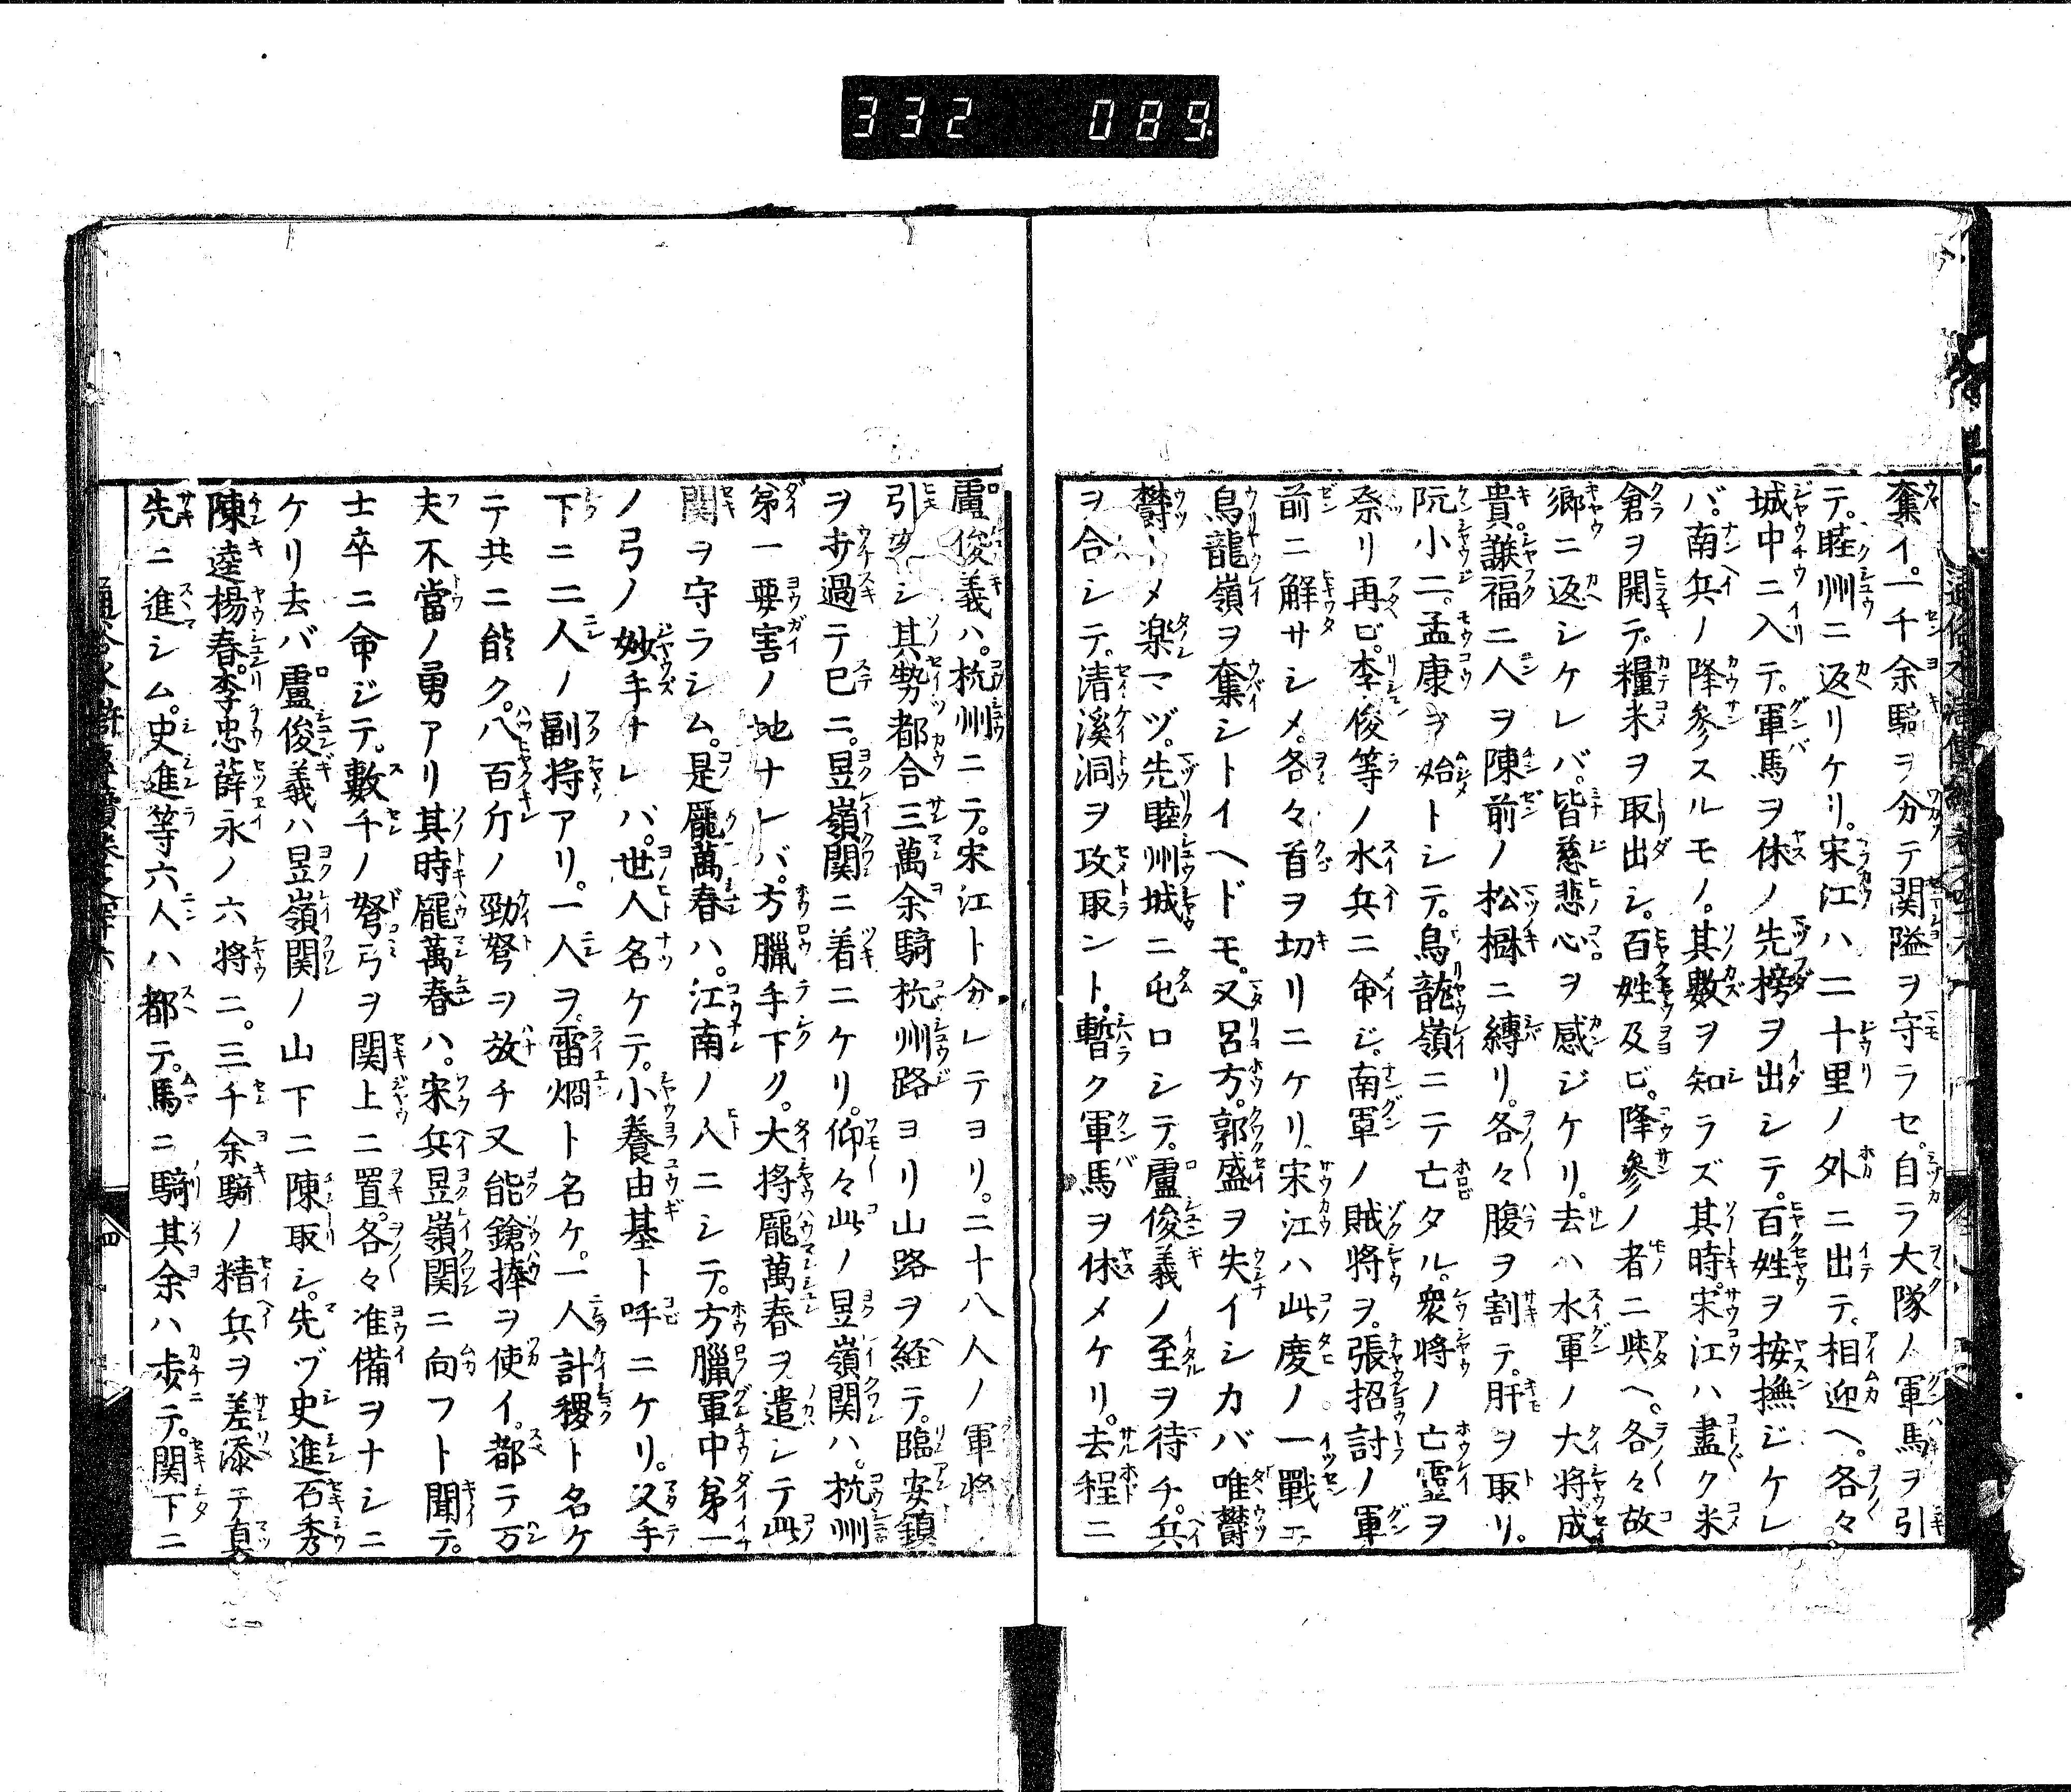 332 089
奪イ。一千余騎ヲ分テ関隘ヲ守ラセ。自ラ大隊ノ軍馬ヲ引
テ。睦州ニ返リケリ。宋江ハ二十里ノ外ニ出テ。相迎ヘ。各々
城中ニ入テ。軍馬ヲ休ノ先榜ヲ出シテ。百姓ヲ按撫ジケレ
バ。南兵ノ降參スルモノ。其數ヲ知ラズ其時。宋江ハ盡ク米
倉ヲ開テ。糧米ヲ取出シ。百姓及ビ。降參ノ者ニ與ヘ。各々故
郷ニ返シケレバ。皆慈悲心ヲ感ジケリ。去ハ水軍ノ大将成
貴。謝福二人ヲ陳前ノ松樹ニ縛リ。各々腹ヲ割テ。肝ヲ取リ。
阮小二。孟康ヲ始トシテ。烏龍嶺ニテ亡タル。衆将ノ亡霊ヲ
祭リ再ビ。李俊等ノ水兵ニ命ジ。南軍ノ賊将ヲ。張招討ノ軍
前ニ解サシメ。各々首ヲ切リニケリ。宋江ハ此度ノ一戰ニ
烏龍嶺ヲ奪シトイヘドモ。又呂方。郭盛ヲ失イシカバ唯欝
欝トメ楽マヅ。先睦州城ニ屯ロシテ。盧俊義ノ至ヲ待チ。兵
ヲ合シテ。清溪洞ヲ攻取ント。暫ク軍馬ヲ休メケリ。去程ニ
盧俊義ハ。杭州ニテ。宋江ト分レテヨリ。二十八人ノ軍将
引シ其勢都合三萬余騎杭州路ヨリ山路ヲ経テ。臨安鎮
ヲ歩過テ已ニ。昱嶺関ニ着ニケリ。仰々此ノ昱嶺関ハ。杭州
第一要害ノ地ナレバ。方臘手下ク。大将龐萬春ヲ遣シテ此
関ヲ守ラシム。是龐萬春ハ。江南ノ人ニシテ。方臘軍中第一
ノ弓ノ妙手ナレバ。世人名ケテ。小養由基ト呼ニケリ。又手
下ニ二人ノ副将アリ。一人ヲ。雷烱ト名ケ。一人計稷ト名ケ
テ共ニ能ク。八百斤ノ勁弩ヲ放チ又能鎗捧ヲ使イ。都テ万
夫不當ノ勇アリ其時龐萬春ハ。宋兵昱嶺関ニ向フト聞テ。
士卒ニ命ジテ。數千ノ弩弓ヲ関上ニ置。各々准備ヲナシニ
ケリ去バ盧俊義ハ昱嶺関ノ山下ニ陳取シ。先ヅ史進石秀
陳逵楊春。李忠薛永ノ六将ニ。三千余騎ノ精兵ヲ差添テ真
先ニ進シム。史進等六人ハ都テ。馬ニ騎其余ハ歩テ。関下ニ